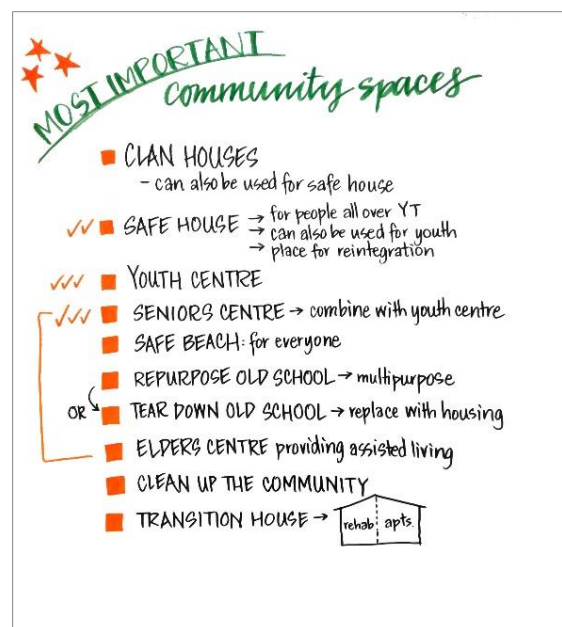 MOST IMPORTANT
community spaces
CLAN HOUSES
- can also be used for safe house
SAFE HOUSE → for people all over YT
→ can also be used for youth
→ place for reintegration
YOUTH CENTRE
SENIORS CENTRE → combine with youth centre
SAFE BEACH: for everyone
REPURPOSE OLD SCHOOL → multipurpose
OR
TEAR DOWN OLD SCHOOL → replace with housing
ELDERS CENTRE providing assisted living
CLEAN UP THE COMMUNITY
TRANSITION HOUSE → rehab apts.